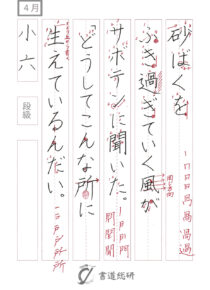 4月
砂ばくを
ふき過ぎていく風が
サボテンに聞いた。
「どうしてこんな所に
生えているんだい。
小六
段級
書道総研